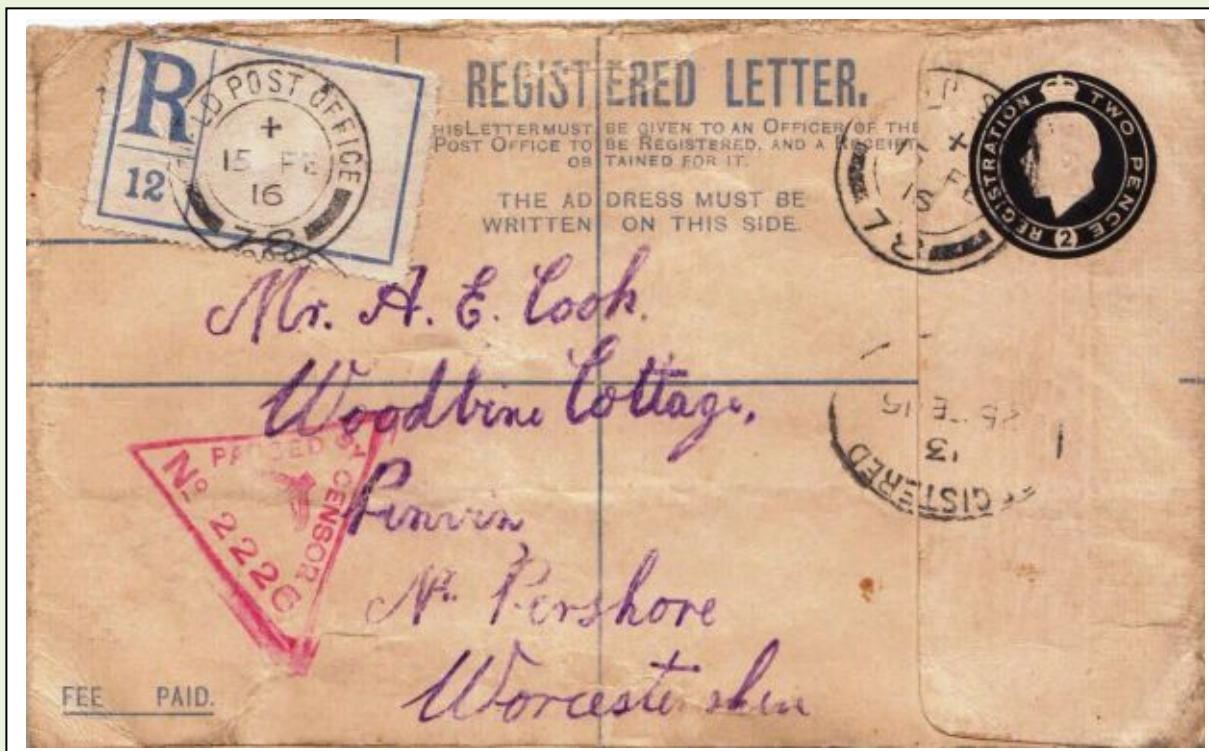 REGISTERED LETTER.
HIS LETTER MUST BE GIVEN TO AN OFFICER OF THE
POST OFFICE TO BE REGISTERED, AND A RECEIPT
OBTAINED FOR IT.
THE ADDRESS MUST BE
WRITTEN ON THIS SIDE.
R
12
LD POST OFFICE
+
15 FE
16
REGISTRATION TWO PENCE
2
Mr. A. E. Cook.
Woodbine Cottage,
Pinvin,
Nr. Pershore
Worcestershire
PASSED BY CENSOR
No 2226
GISTERED
FEE PAID.